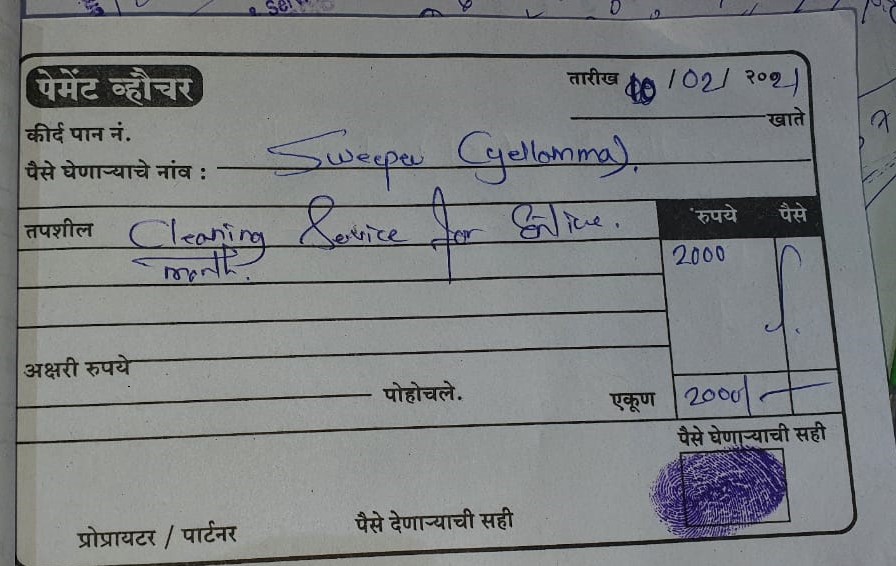 पेमेंट व्हौचर
तारीख 10/02/ २०21
कीर्द पान नं. खाते
पैसे घेणाऱ्याचे नांव : Sweeper (yellomma).
तपशील Cleaning Service for Entire. रुपये पैसे
month. 2000
अक्षरी रुपये
पोहोचले. एकूण 2000/-
पैसे घेणाऱ्याची सही
प्रोप्रायटर / पार्टनर पैसे देणाऱ्याची सही